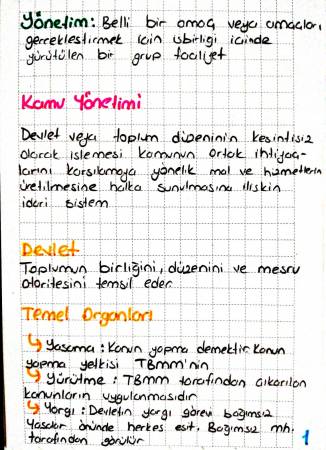 Yönetim: Belli bir amaç veya amaçları
gerçekleştirmek için işbirliği içinde
yürütülen bir grup faaliyet
Kamu Yönetimi
Devlet veya toplum düzeninin kesintisiz
olarak işlemesi kamunun ortak ihtiyaç-
larını karşılamaya yönelik mal ve hizmetlerin
üretilmesine halka sunulmasına ilişkin
idari sistem
Devlet
Toplumun birliğini, düzenini ve meşru
otoritesini temsil eder
Temel Organları
↳ Yasama: Kanun yapma demektir. Kanun
yapma yetkisi TBMM'nin
↳ Yürütme: TBMM tarafından çıkarılan
kanunların uygulanmasıdır
↳ Yargı: Devletin yargı görevi bağımsız
Yasalar önünde herkes eşit. Bağımsız mh.
tarafından görülür
1